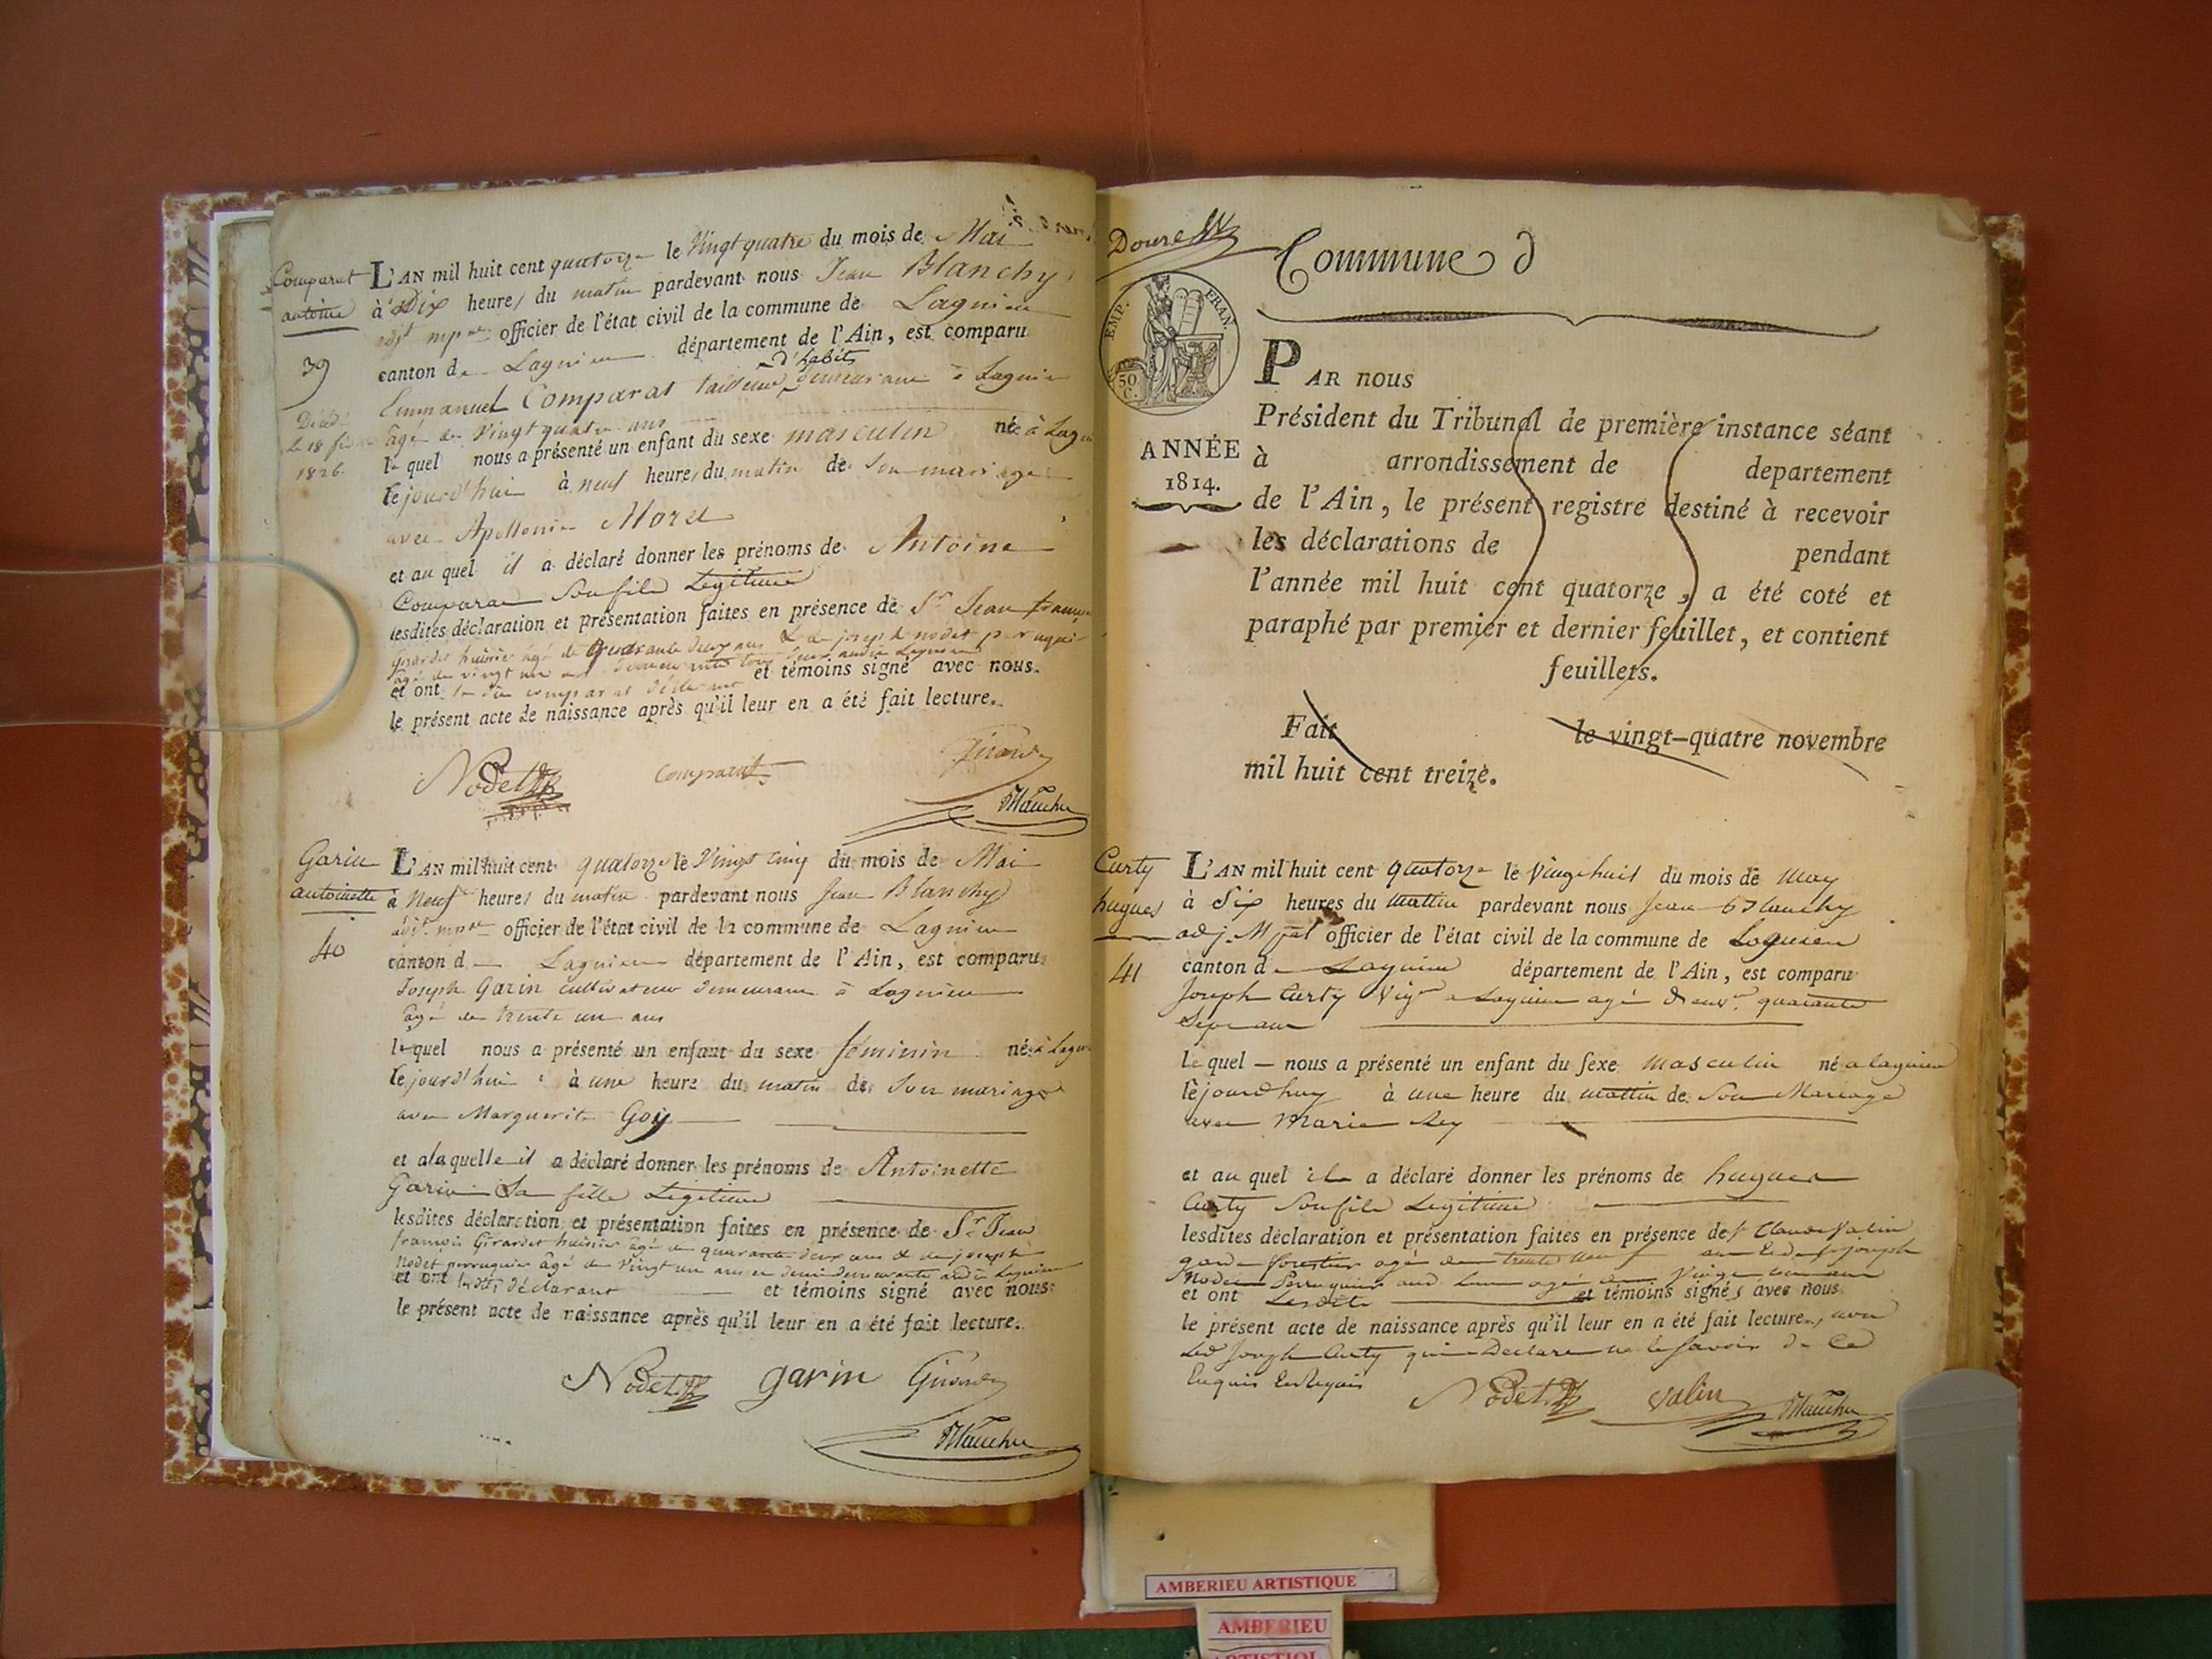 Comparat
antoine
39
Décédé
le 18 février
1826.
L'AN mil huit cent quatorze le Vingt quatre du mois de Mai
à Dix heures du matin pardevant nous Jean Blanchy
adjt mpal officier de l'état civil de la commune de Lagnieu
canton de Lagnieu département de l'Ain, est comparu
d'habits
Emmanuel Comparat tailleur demeurant à Lagnieu
âgé de Vingt quatre ans
le quel nous a présenté un enfant du sexe masculin né à Lagn
le jourd'hui à neuf heures du matin de son mariage
avec Apollonie Morel
et au quel il a déclaré donner les prénoms de Antoine
Comparat Son fils Légitime
lesdites déclaration et présentation faites en présence de Sr Jean françois
Girardet huissier âgé de quarante deux ans & de joseph nodet perruquier
âgé de vingt un ans demeurants tous deux audit Lagnieu
et ont le dit comparat déclarant et témoins signé avec nous.
le présent acte de naissance après qu'il leur en a été fait lecture.
Nodet comparat
Garin
antoinette
40
L'AN mil huit cent quatorze le Vingt cinq du mois de Mai
à Neuf heures du matin pardevant nous Jean Blanchy
adjt mpal officier de l'état civil de la commune de Lagnieu
canton de Lagnieu département de l'Ain, est comparu
Joseph Garin cultivateur demeurant à Lagnieu
âgé de trente un ans
le quel nous a présenté un enfant du sexe féminin né à Lagn
le jourd'hui à une heure du matin de son mariage
avec Marguerite Goy
et a laquelle il a déclaré donner les prénoms de Antoinette
Garin Sa fille Légitime
lesdites déclaration et présentation faites en présence de Sr Jean
françois Girardet huissier âgé de quarante deux ans & de joseph
Nodet perruquier âgé de Vingt un ans et demi demeurants audit Lagnieu
et ont lesdits déclarant et témoins signé avec nous
le présent acte de naissance après qu'il leur en a été fait lecture.
Nodet garin
Commune d
EMP. FRAN.
50 C.
ANNÉE
1814.
PAR nous
Président du Tribunal de première instance séant
à arrondissement de departement
de l'Ain, le présent registre destiné à recevoir
les déclarations de pendant
l'année mil huit cent quatorze, a été coté et
paraphé par premier et dernier feuillet, et contient
feuillets.
Fait le vingt-quatre novembre
mil huit cent treize.
Curty
hugues
41
L'AN mil huit cent quatorze le Vingt huit du mois de May
à Six heures du mattin pardevant nous Jean Blanchy
adj. Mpal officier de l'état civil de la commune de Lagnieu
canton de Lagnieu département de l'Ain, est comparu
Joseph Curty Vigon a Lagnieu agé d'envn quarante
Sept ans
Le quel nous a présenté un enfant du sexe masculin né a lagnieu
le jourdhuy à une heure du mattin de Son Mariage
avec Marie Rey
et au quel il a déclaré donner les prénoms de hugues
Curty Son fils Legitime
lesdites déclaration et présentation faites en présence de Sr Claude Valin
garde forestier agé de trente neuf ans Et de Sr Joseph
Nodet Perruquier aud. Lieu agé de Vingt un ans
et ont Lesdits et témoins signés avec nous
le présent acte de naissance après qu'il leur en a été fait lecture, non
Led Joseph Curty qui a Declaré ne le savoir de Ce
Enquis Et Requis
Nodet Valin
AMBERIEU ARTISTIQUE
AMBERIEU
ARTISTIQU